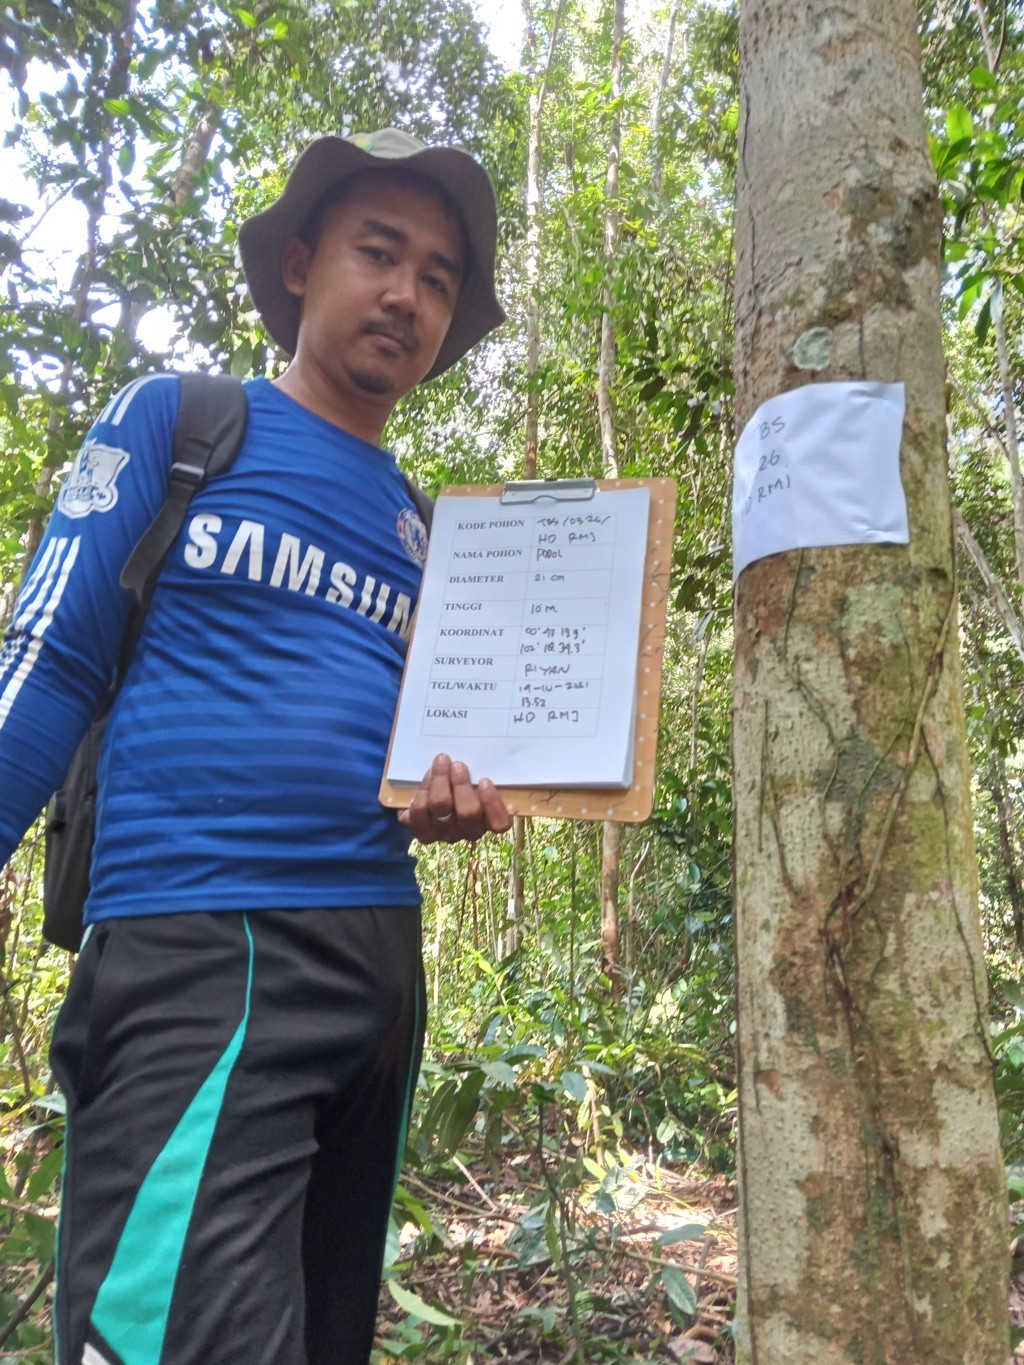 SAMSUN
KODE POHON TBS/0326/
HD RMJ
NAMA POHON
DIAMETER 21 cm
TINGGI 10 M
KOORDINAT
SURVEYOR RIYAN
TGL/WAKTU
13.52
LOKASI HD RMJ
BS
26
RMJ